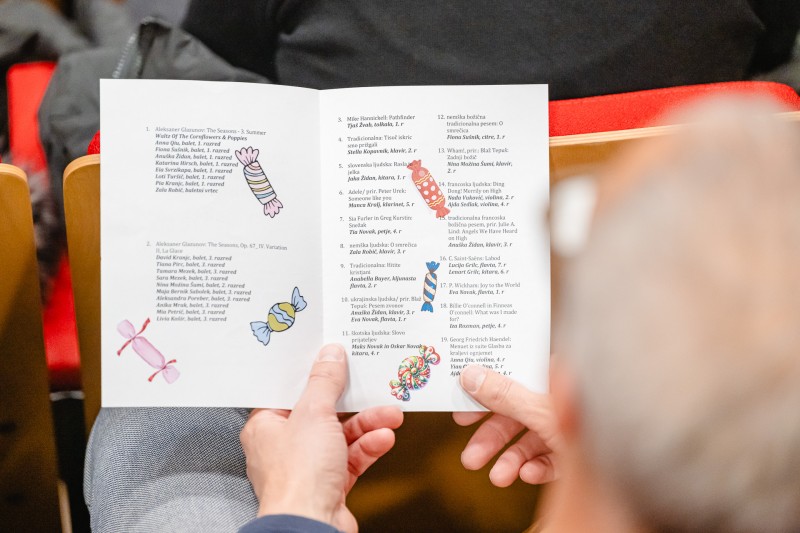 1. Aleksaner Glazunov: The Seasons - 3. Summer
Waltz Of The Cornflowers & Poppies
Anna Qiu, balet, 1. razred
Fiona Sušnik, balet, 1. razred
Anuška Žiđan, balet, 1. razred
Katarina Hirsch, balet, 1. razred
Eta Serezhapa, balet, 1. razred
Loti Turšič, balet, 1. razred
Pia Kranjc, balet, 1. razred
Zala Robič, baletni vrtec
2. Aleksaner Glazunov: The Seasons, Op. 67_ IV. Variation
II, La Glace
David Kranjc, balet, 3. razred
Tiana Pirc, balet, 3. razred
Tamara Mesek, balet, 3. razred
Sara Mesek, balet, 3. razred
Nina Možina Šumi, balet, 2. razred
Maja Bernik Sobolek, balet, 3. razred
Aleksandra Pornber, balet, 3. razred
Anika Mrak, balet, 3. razred
Mia Petrič, balet, 3. razred
Livia Košir, balet, 3. razred
3. Mike Hannickell: Pathfinder
Tjaž Žvak, tolkala, 1. r
4. Tradicionalna: Tisoč iskric
smo prižgali
Stella Kaparnik, klavir, 2. r
5. slovenska ljudska: Rasla
jelka
Jaka Žiđan, kitara, 1. r
6. Adele/ prir. Peter Urek:
Someone like you
Manca Kralj, klarinet, 5. r
7. Sia Furler in Greg Kurstin:
Snežak
Tia Novak, petje, 4. r
8. nemška ljudska: O smrečica
Zala Robič, klavir, 3. r
9. Tradicionalna: Hitite
kristjani
Anabella Bayer, kljunasta
flavta, 2. r
10. ukrajinska ljudska/ prir. Blaž
Topuli: Pesem zvonov
Anuška Žiđan, klavir, 3. r
Eva Novak, flavta, 1. r
11. škotska ljudska: Slovo
prijateljev
Maks Novak in Oskar Novak
kitara, 4. r
12. nemška božična
tradicionalna pesem: O
smrečica
Fiona Sušnik, citre, 1. r
13. Wham!, prir.: Blaž Topuli:
Zadnji božič
Nina Možina Šumi, klavir,
2. r
14. francoska ljudska: Ding
Dong! Merrily on High
Nada Vuković, violina, 2. r
Ajda Sedlak, violina, 4. r
tradicionalna francoska
božična pesem, prir. Julie A.
Lind: Angels We Have Heard
on High
Anuška Žiđan, klavir, 3. r
16. C. Saint-Saëns: Labod
Lucija Grilc, flavta, 7. r
Lenart Grilc, kitara, 6. r
17. P. Wickham: Joy to the World
Eva Novak, flavta, 1. r
18. Billie O'connell in Finneas
O'connell: What was I made
for?
Iza Rosman, petje, 4. r
19. Georg Friedrich Haendel:
Menuet iz suite Glasba za
kraljevi ognjemet
Anna Qiu, violina, 4. r
Yian
Ajda